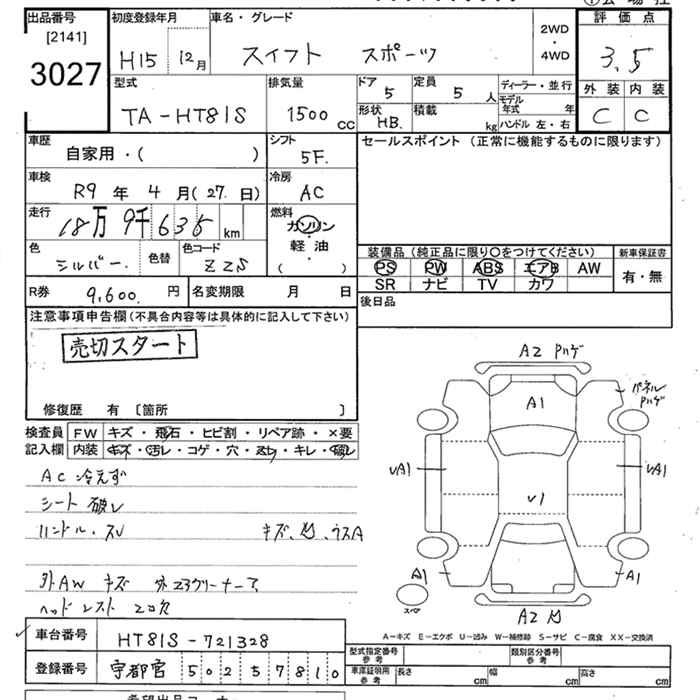 出品番号
[2141]
3027
初度登録年月 車名・グレード
H15 12月 スイフト スポーツ
2WD
・
4WD
評価点
3.5
外装 内装
C C
型式 排気量
TA-HT81S 1500cc
ドア 5 定員 5人
形状 HB. 積載 kg
ディーラー・並行
モデル年式 年
ハンドル 左・右
車歴
自家用・( )
シフト
5F.
車検
R9年 4月(27.日)
冷房
AC
走行
18万9千635km
燃料
ガソリン
・
軽油
・
( )
色 シルバー. 色替 色コード Z2S
R券 9,600.円 名変期限 月 日
セールスポイント (正常に機能するものに限ります)
装備品 (純正品に限り○をつけてください) 新車保証書
PS PW ABS エアB AW 有・無
SR ナビ TV カワ
後日品
注意事項申告欄(不具合内容等は具体的に記入して下さい)
売切スタート
修復歴 有 〔箇所 〕
検査員 FW キズ・飛石・ヒビ割・リペア跡・×要
記入欄 内装 キズ・汚レ・コゲ・穴・スレ・キレ・破レ
AC 冷えず
シート 破レ
ハンドル・スレ キズ、凹、ウスA
外AW キズ
ヘッドレスト 2コ欠
A2 ハゲ
A1
パネル
ハゲ
vA1 vA1
v1
A1 A1
スペア
A2 凹
A-キズ E-エクボ U-凹み W-補修跡 S-サビ C-腐食 XX-交換済
車台番号 HT81S-721328
登録番号 宇都宮 502 5 7810
型式指定番号 参考 類別区分番号 参考
車庫証明用 参考 長さ cm 幅 cm 高さ cm